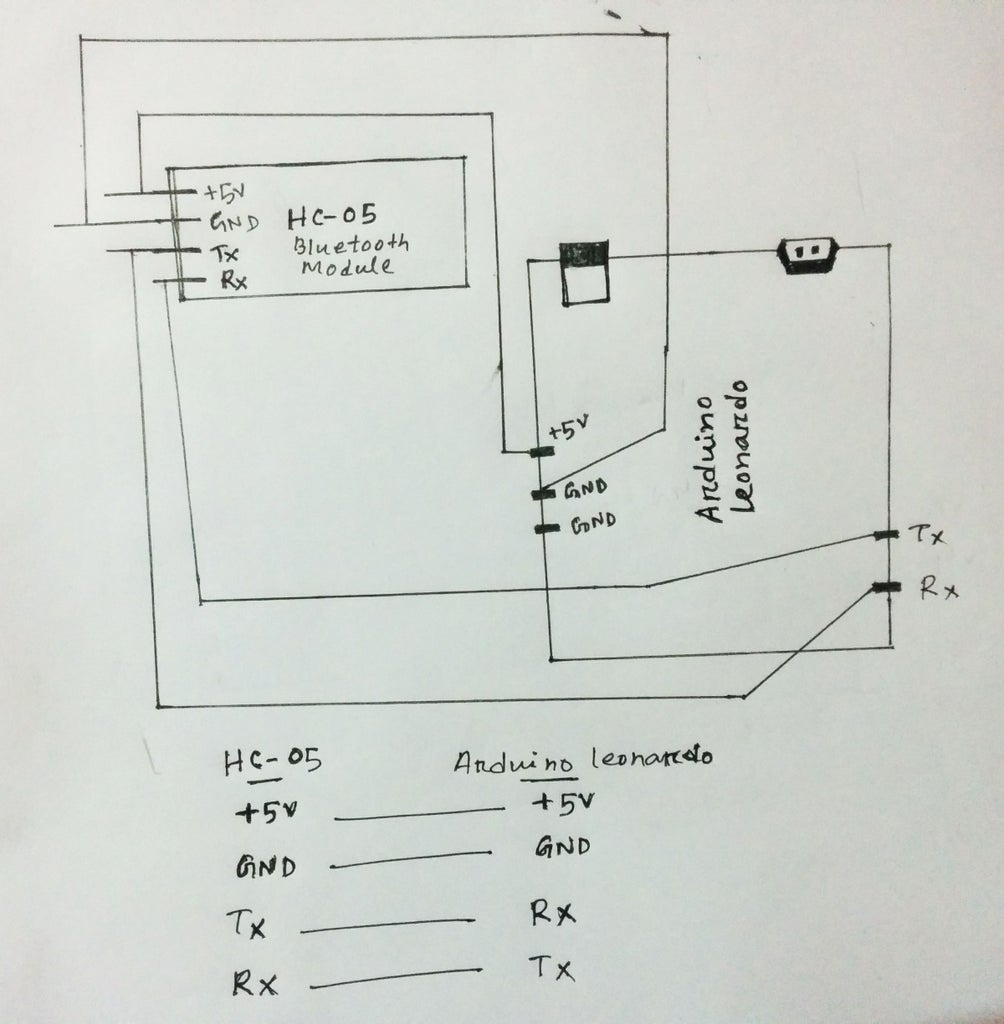 +5V
GND
Tx
Rx
HC-05
Bluetooth
Module
+5V
GND
GND
Arduino
leonardo
Tx
Rx
HC-05 Arduino leonardo
+5V +5V
GND GND
Tx Rx
Rx Tx